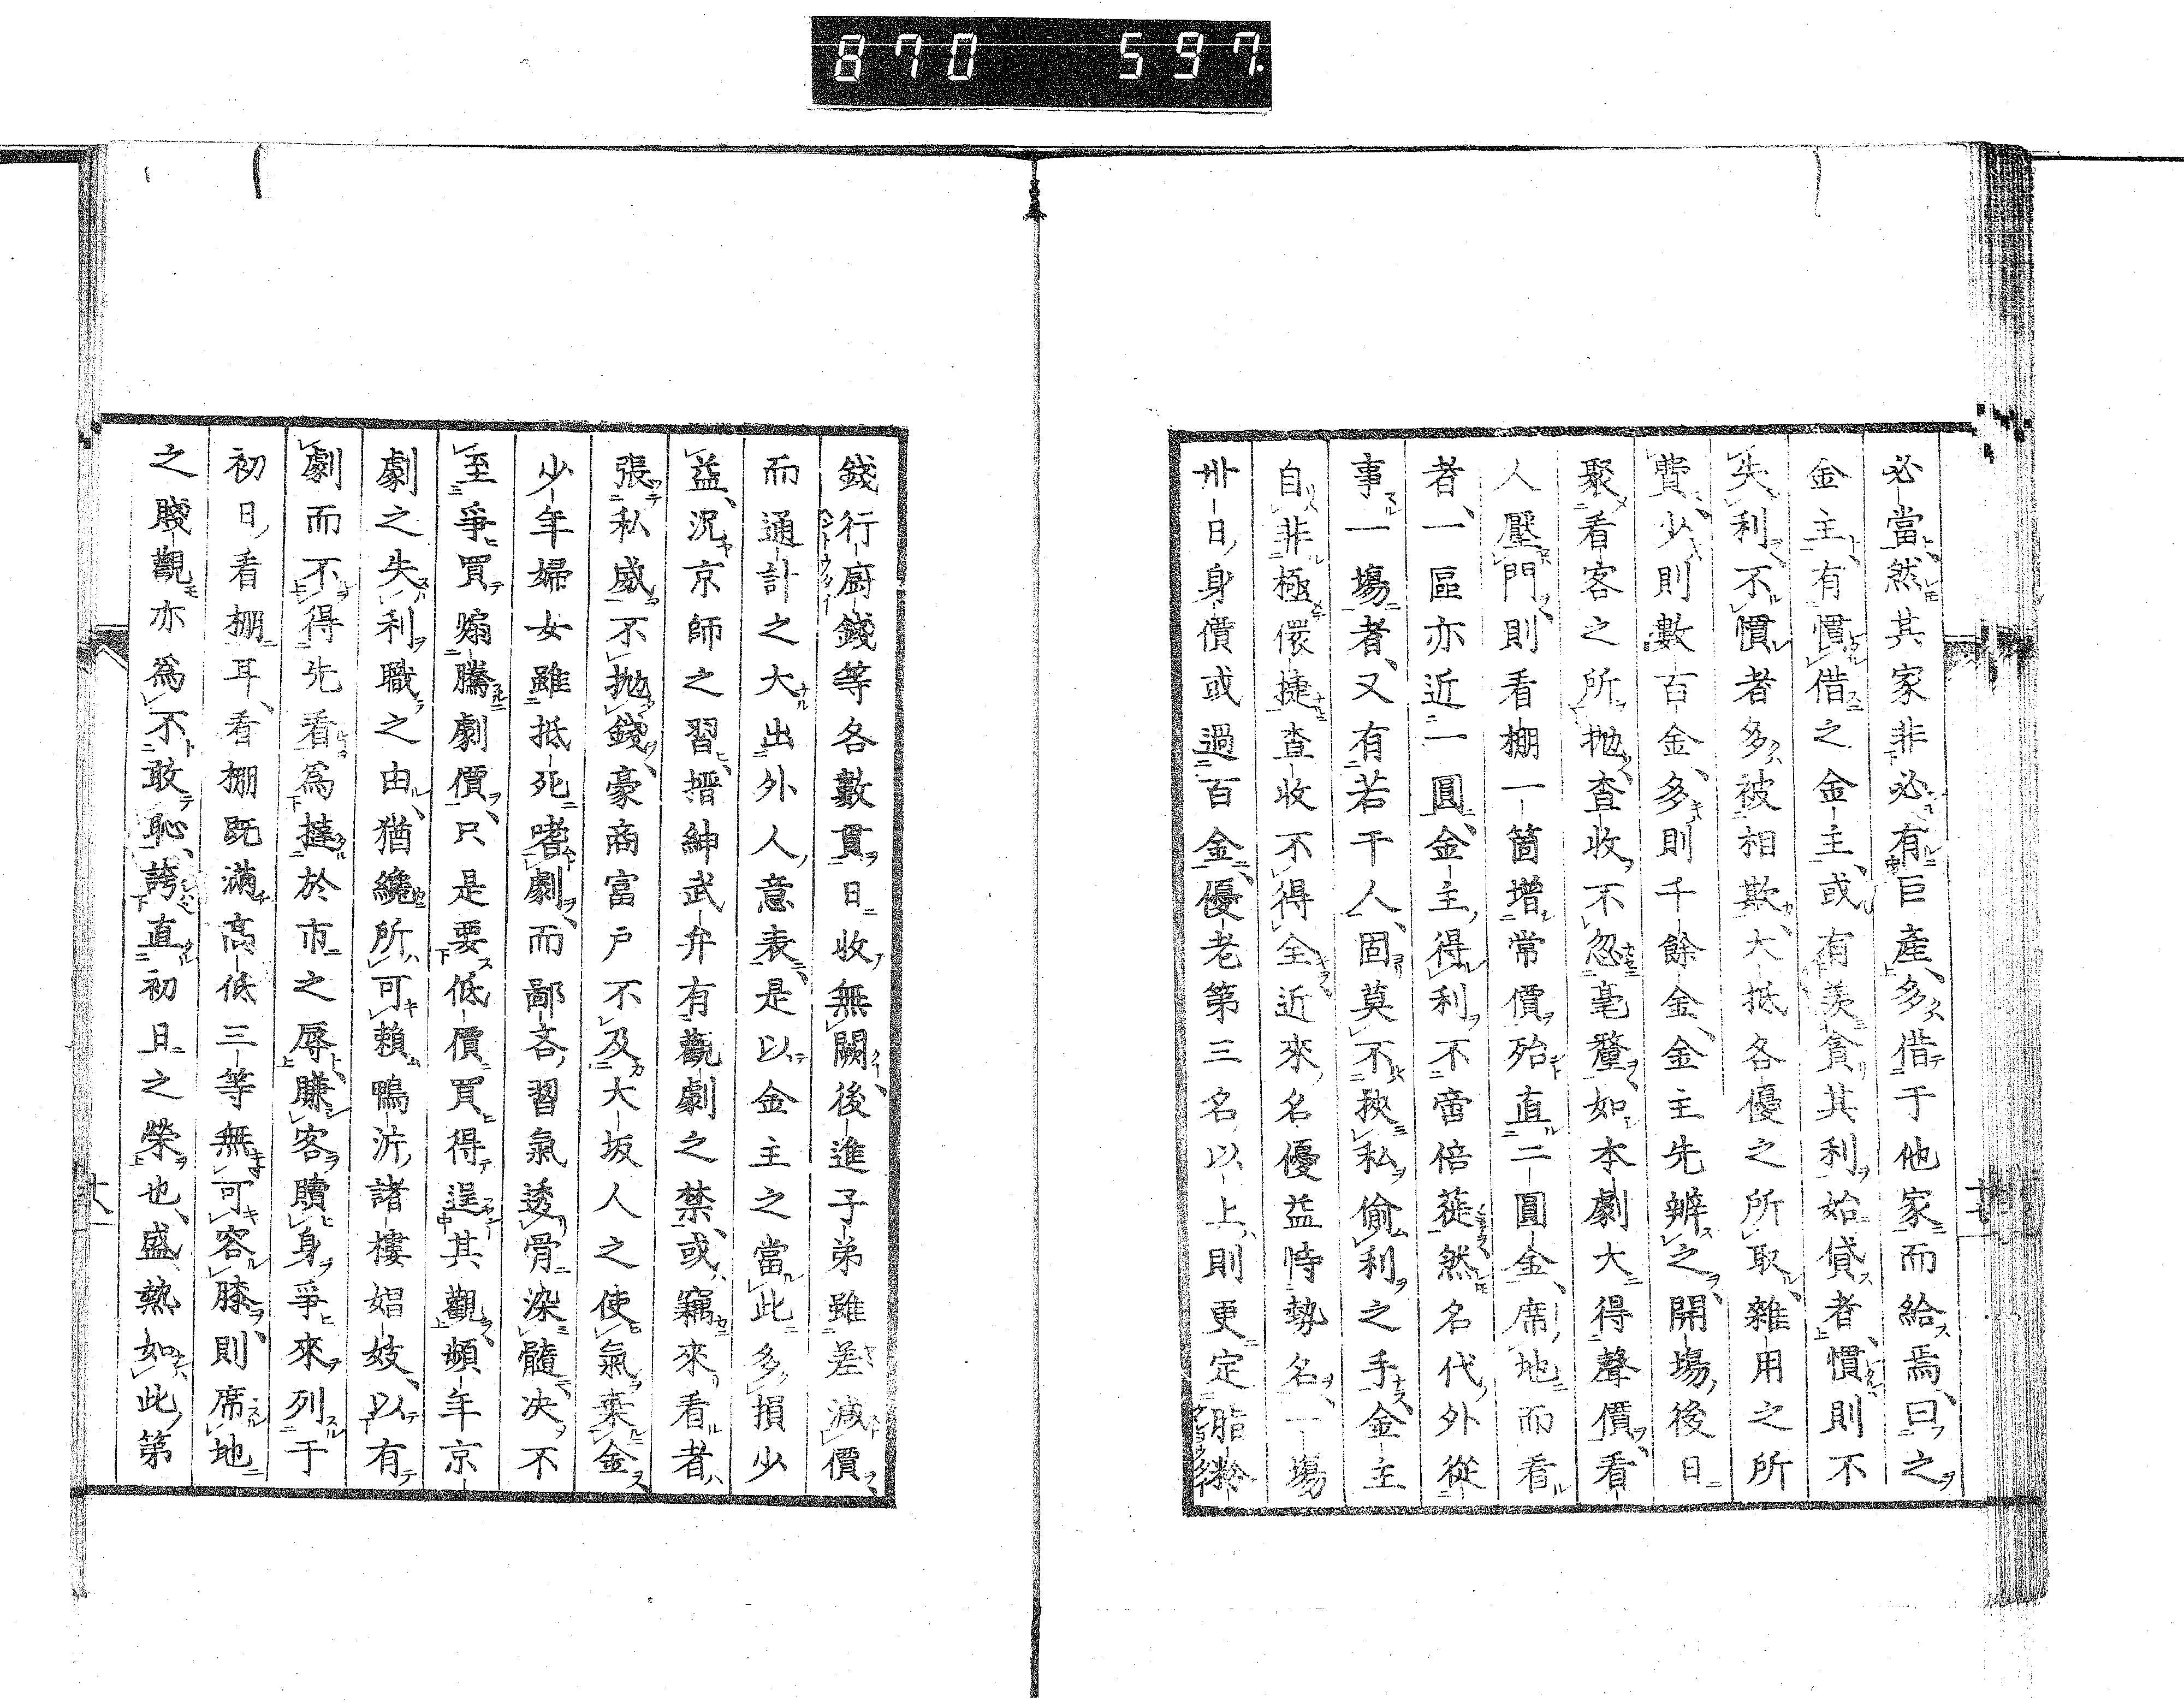 870 597
必當、然其家非必有巨產、多借于他家而給焉、曰之
金主、有慣借之金主、或有羨貪其利始貸者、慣則不
失利、不慣者多被相欺、大抵各優之所取、雜用之所
費、少則數百金、多則千餘金、金主先辨之、開場後日
聚看客之所抛、査收不忽毫釐、如本劇大得聲價、看
人壓門、則看棚一箇增常價、殆直二圓金、席地而看
者、一區亦近一圓、金主得利不啻倍蓰、然名代外從
事一場者、又有若干人、固莫不挾私偷利之手、金主
自非極儇捷、査收不得全、近來名優益恃勢名、一場
卅日身價或過百金、優老第三名以上、則更定脂粉
錢行厨錢等各數貫、日收無闕、後進子弟雖差減價
而通計之大出外人意表、是以金主之當此多損少
益、況京師之習、搢紳武弁有觀劇之禁、或竊來看者、
張私威不抛錢、豪商富戸不及大坂人之使氣棄金
少年婦女雖抵死嗜劇、而鄙吝習氣透骨染髓、决不
至爭買煽騰劇價、只是要低價買得逞其觀、頻年京
劇之失利職之由、猶纔所可賴鴨沂諸樓娼妓、以有
劇而不得先看爲撻於市之辱、賺客贖身爭來列于
初日看棚耳、看棚既滿、高低三等無可容膝、則席地
之賤觀亦爲不敢恥、誇直初日之榮也、盛熱如此、第